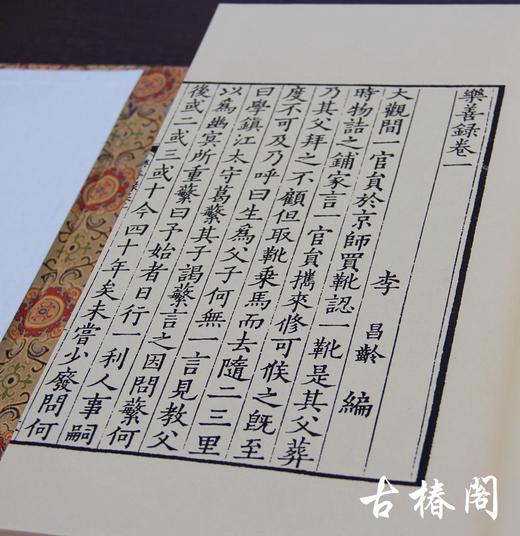 樂善錄卷一
李昌齡編
大觀間一官貟於京師買靴認一靴是其父葬
時物詰之鋪家言一官貟攜來修可候之旣至
乃其父拜之不顧但取靴乗馬而去隨二三里
度不可及乃呼曰生爲父子何無一言見教父
曰學鎮江太守葛蘩其子謁蘩言之因問蘩何
以爲幽冥所重蘩曰予始者日行一利人事嗣
後或二或三或十今四十年矣未嘗少廢問何
古椿閣